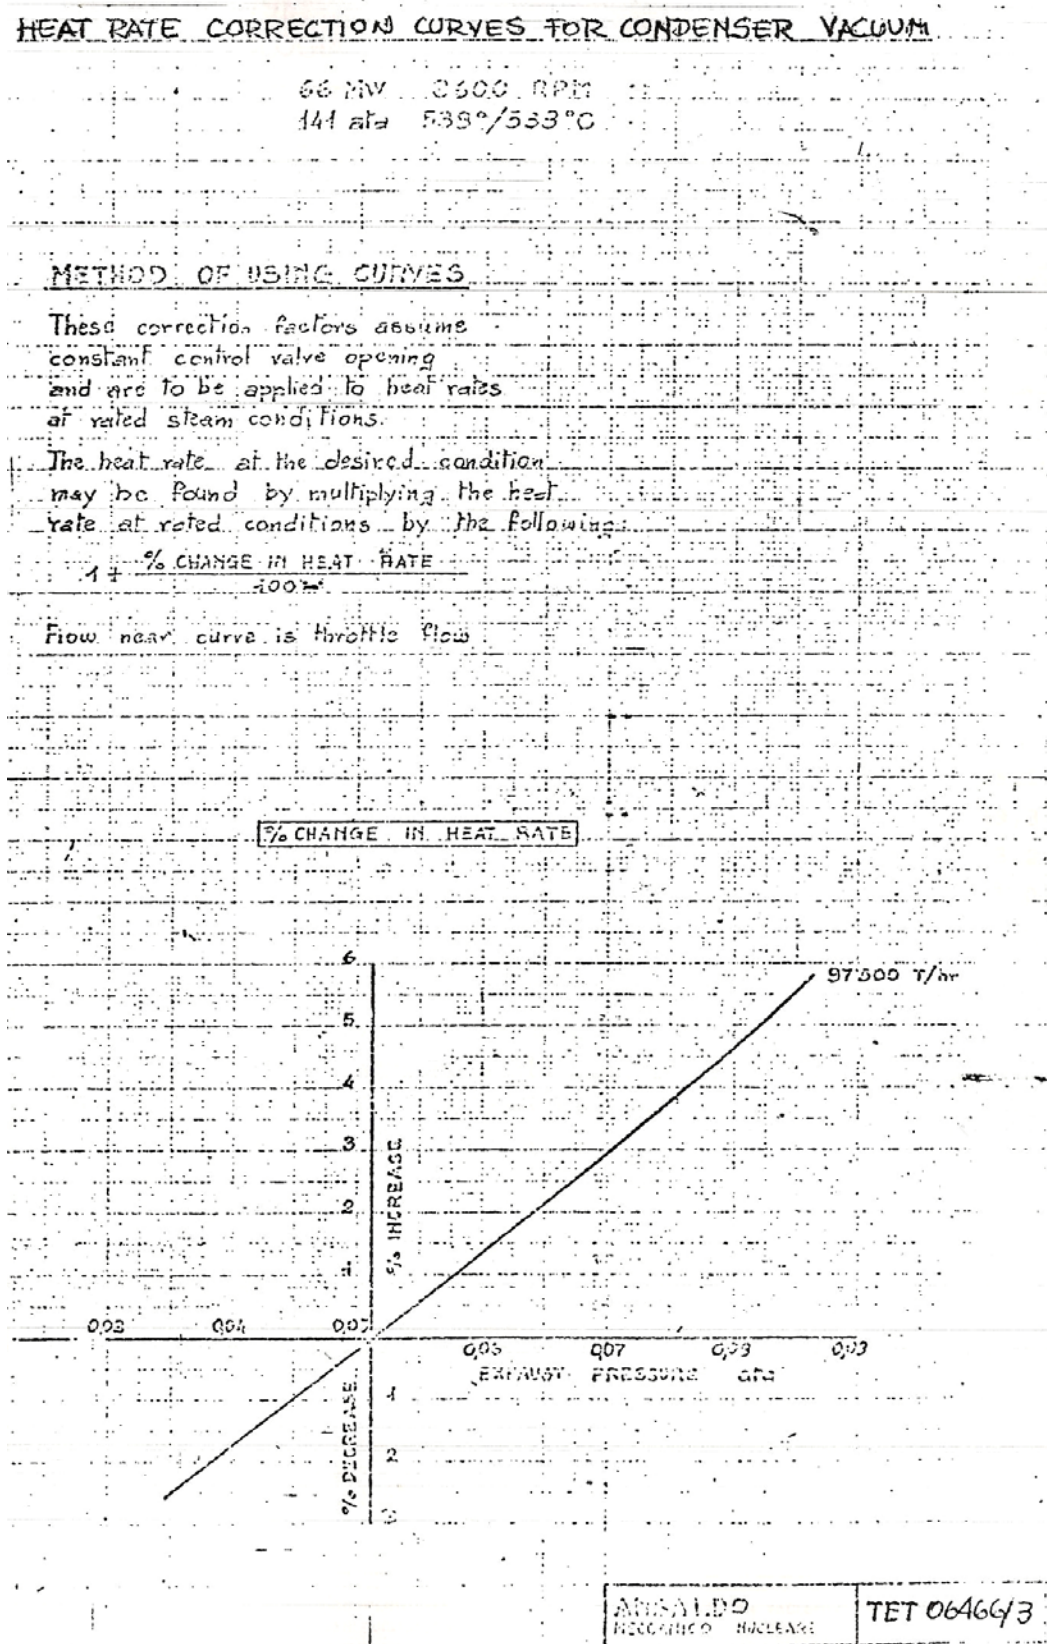 HEAT RATE CORRECTION CURVES FOR CONDENSER VACUUM
66 MW 3600 RPM
141 ata 538°/538°C
METHOD OF USING CURVES
These correction factors assume
constant control valve opening
and are to be applied to heat rates
at rated steam conditions.
The heat rate at the desired condition
may be found by multiplying the heat
rate at rated conditions by the following:
1 ± % CHANGE IN HEAT RATE
100
Flow near curve is throttle flow
% CHANGE IN HEAT RATE
6
97'500 T/hr
5
4
3
2
% INCREASE
1
0,03 0,04 0,05
0,06 0,07 0,08 0,09
EXHAUST PRESSURE ata
1
% DECREASE
2
3
ANSALDO
MECCANICO NUCLEARE
TET 06466/3